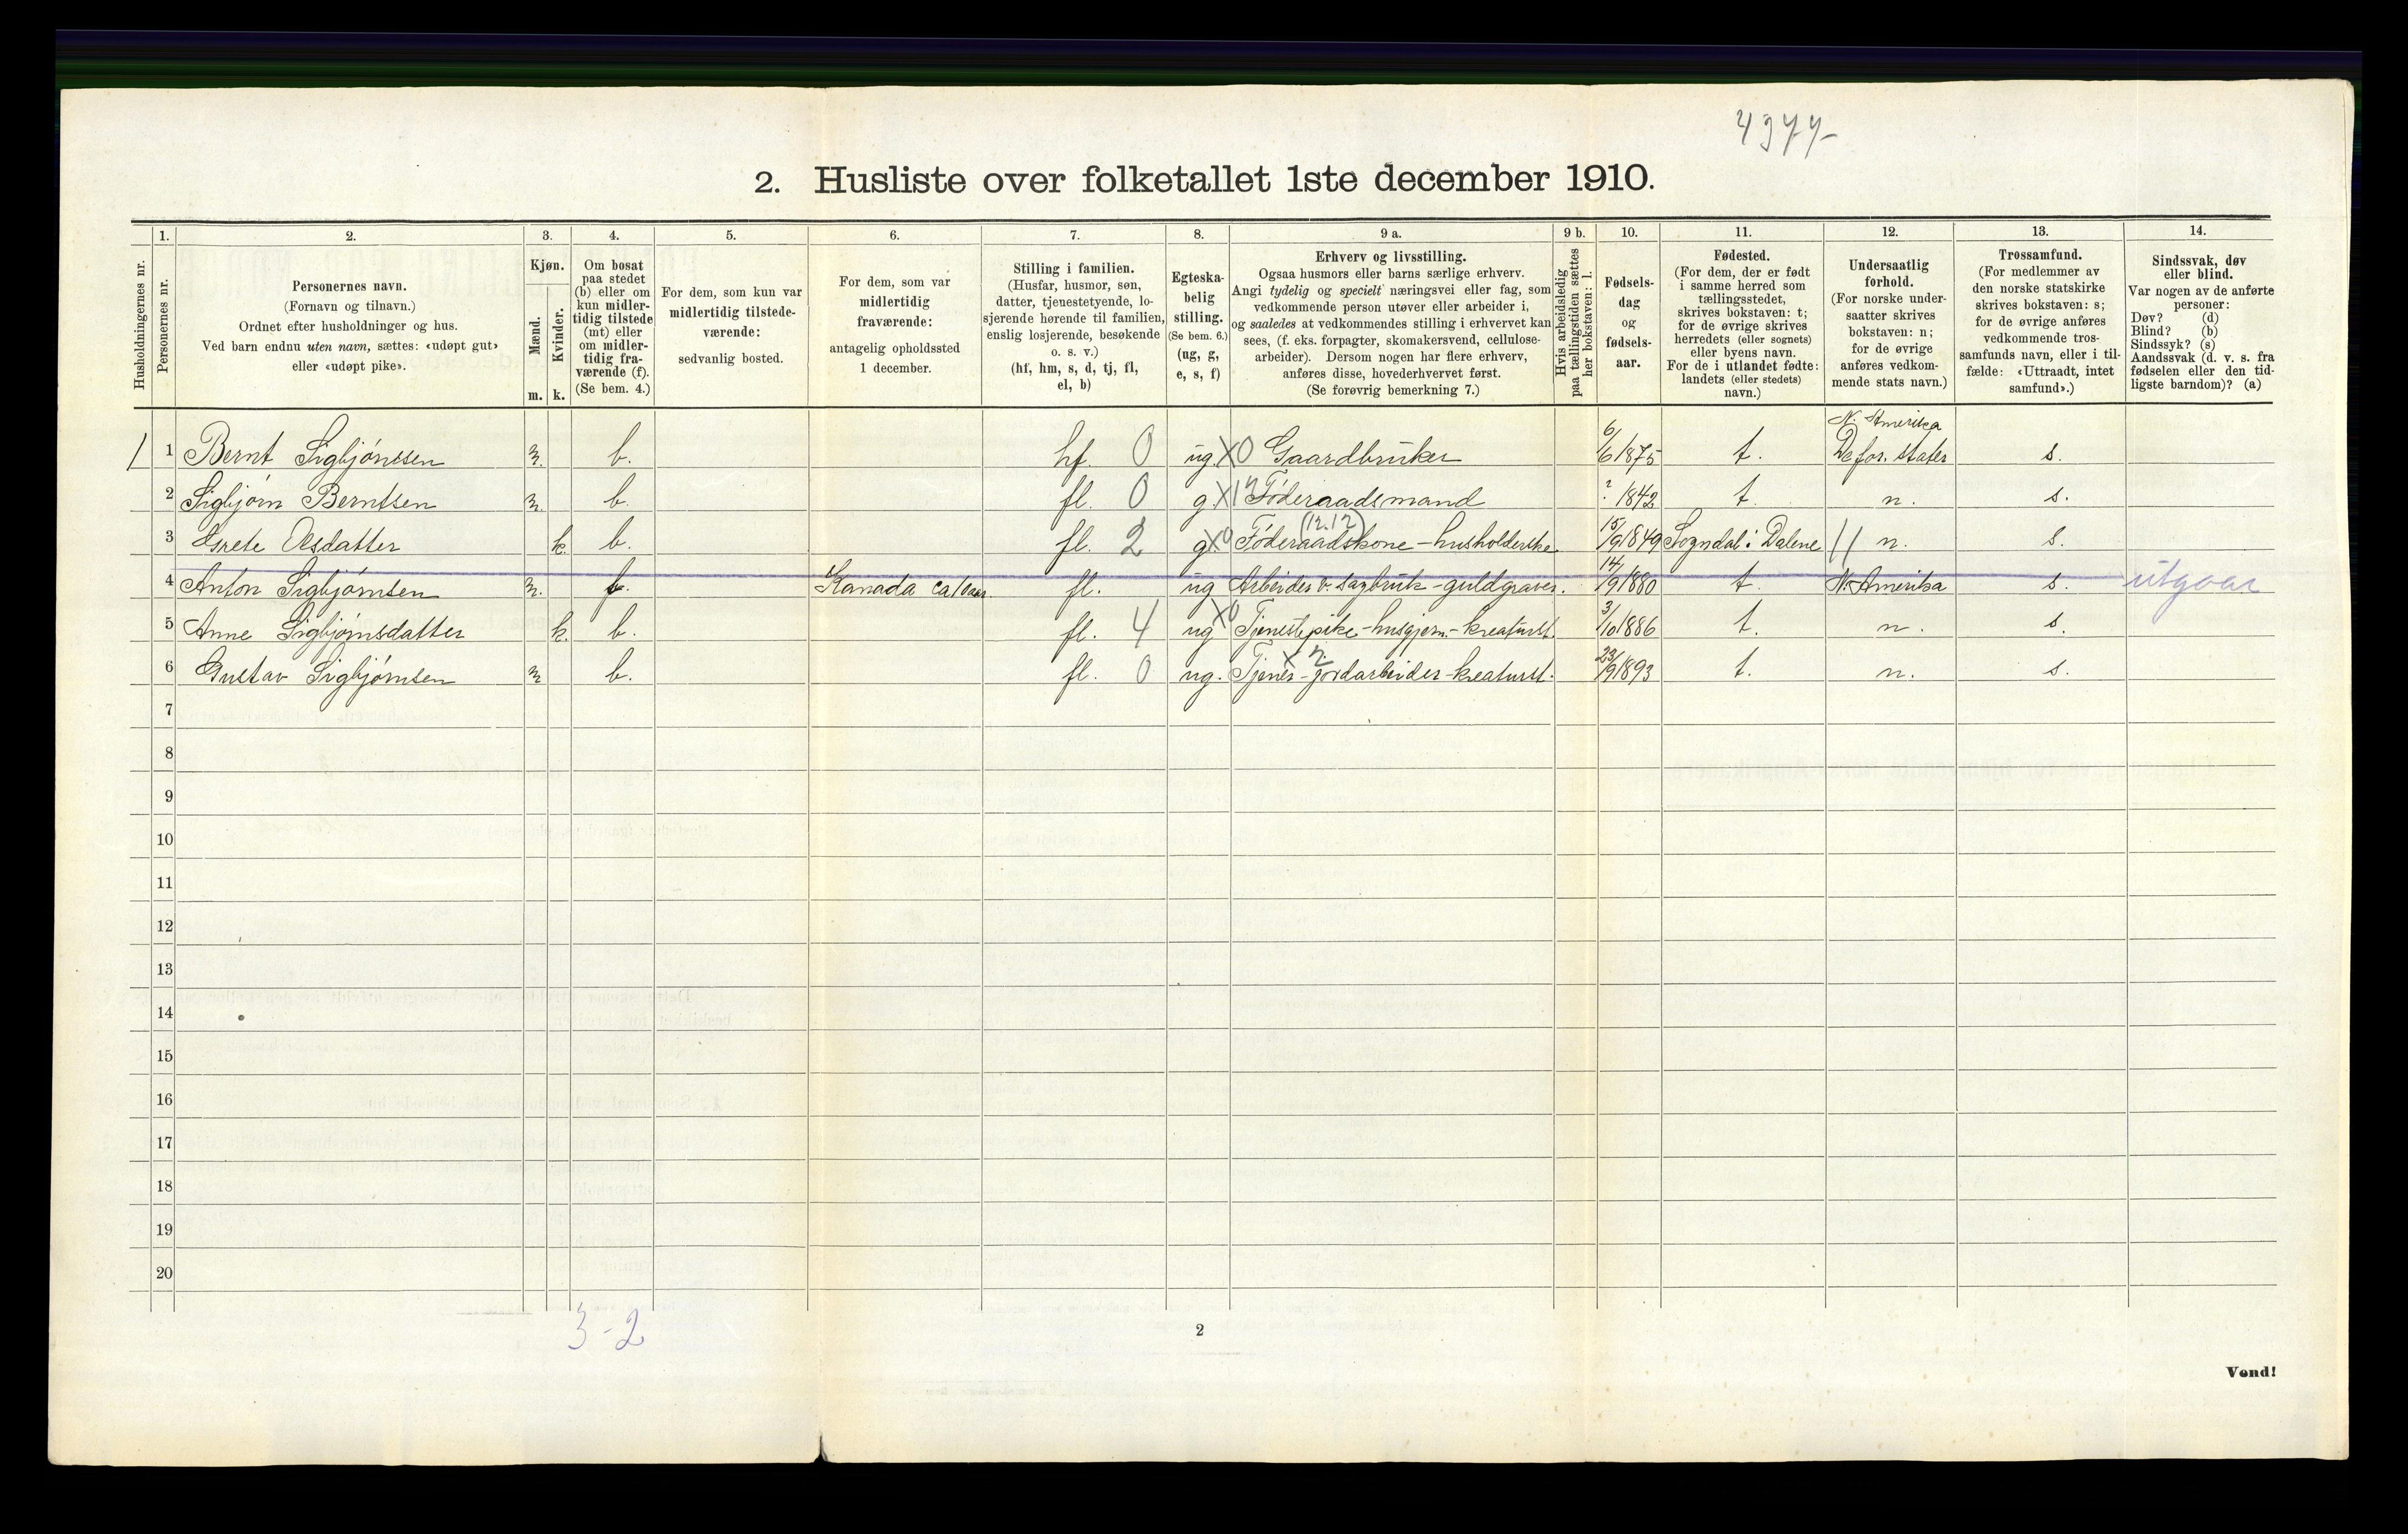 4977-
2. Husliste over folketallet 1ste december 1910.
Husholdningernes nr.
1.
Personernes nr.
2.
Personernes navn.
(Fornavn og tilnavn.)
Ordnet efter husholdninger og hus.
Ved barn endnu uten navn, sættes: «udøpt gut»
eller «udøpt pike».
3.
Kjøn.
Mænd.
Kvinder.
m. k.
4.
Om bosat
paa stedet
(b) eller om
kun midler-
tidig tilstede
(mt) eller
om midler-
tidig fra-
værende (f).
(Se bem. 4.)
5.
For dem, som kun var
midlertidig tilstede-
værende:
sedvanlig bosted.
6.
For dem, som var
midlertidig
fraværende:
antagelig opholdssted
1 december.
7.
Stilling i familien.
(Husfar, husmor, søn,
datter, tjenestetyende, lo-
sjerende hørende til familien,
enslig losjerende, besøkende
o. s. v.)
(hf, hm, s, d, tj, fl,
el, b)
8.
Egteska-
belig
stilling.
(Se bem. 6.)
(ug, g,
e, s, f)
9 a.
Erhverv og livsstilling.
Ogsaa husmors eller barns særlige erhverv.
Angi tydelig og specielt næringsvei eller fag, som
vedkommende person utøver eller arbeider i,
og saaledes at vedkommendes stilling i erhvervet kan
sees, (f. eks. forpagter, skomakersvend, cellulose-
arbeider). Dersom nogen har flere erhverv,
anføres disse, hovederhvervet først.
(Se forøvrig bemerkning 7.)
9 b.
Hvis arbeidsledig
paa tællingstiden sættes
her bokstaven: l.
10.
Fødsels-
dag
og
fødsels-
aar.
11.
Fødested.
(For dem, der er født
i samme herred som
tællingsstedet,
skrives bokstaven: t;
for de øvrige skrives
herredets (eller sognets)
eller byens navn.
For de i utlandet fødte:
landets (eller stedets)
navn.)
12.
Undersaatlig
forhold.
(For norske under-
saatter skrives
bokstaven: n;
for de øvrige
anføres vedkom-
mende stats navn.)
13.
Trossamfund.
(For medlemmer av
den norske statskirke
skrives bokstaven: s;
for de øvrige anføres
vedkommende tros-
samfunds navn, eller i til-
fælde: «Uttraadt, intet
samfund».)
14.
Sindssvak, døv
eller blind.
Var nogen av de anførte
personer:
Døv? (d)
Blind? (b)
Sindssyk? (s)
Aandssvak (d. v. s. fra
fødselen eller den tid-
ligste barndom)? (a)
1 1 Bernt Sigbjørnsen m. b. hf. 0 ug. X0 Gaardbruker 6/6 1875 t. N. Amerika De for. stater s.
2 Sigbjørn Berntsen m. b. fl. 0 g. X12 Føderaadsmand ? 1842 t. n. s.
3 Grete Olsdatter k. b. fl. 2 g X0 Føderaadskone - husholderske (12.12) 15/9 1849 Sogndal i Dalene // n. s.
4 Anton Sigbjørnsen m. f. Kanada ca 10 aar. fl. ug Arbeider v. sagbruk - guldgraver. 14/9 1880 t. N. Amerika s. utgaar
5 Anne Sigbjørnsdatter k. b. fl. 4 ug X0 Tjenestepike - husgjern. - kreaturst. 3/10 1886 t. n. s.
6 Gustav Sigbjørnsen m b. fl. 0 ug. Tjener - jordarbeider - kreaturst. 23/9 1893 t. n. s.
7
8
9
10
11
12
13
14
15
16
17
18
19
20
3-2
2
Vend!